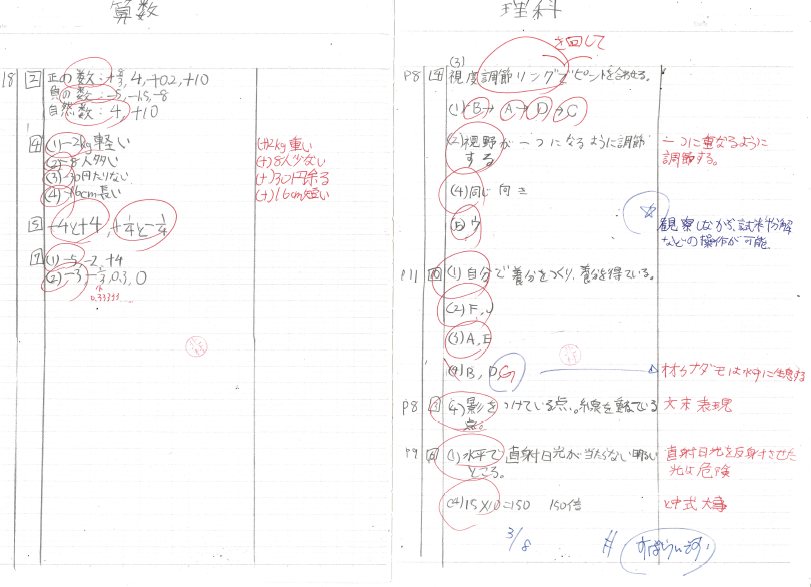 算数
18 ③ 正の数:+8/3, 4, +0.2, +10
負の数:-5, -1.5, -8
自然数:4, +10
④ (1) -2kg軽い
(+)2kg重い
(2) -8人多い
(+)8人少ない
(3) -30円たりない
(+)30円余る
(4) -16cm長い
(+)16cm短い
⑤ -4と+4, +1/4と-1/4
⑦ (1) -5, -2, +4
(2) -3, -1/3, 0.3, 0
0.33333...
理科
を回して
(3)
P8 ④ 視度調節リングでピントを合わせる。
(1) B→A→D→C
(2) 視野が一つになるように調節
する
一つに重なるように
調節する。
(4) 同じ向き
(5) ウ
☆
観察しながら、試料分解
などの操作が可能
P11 ⑩ (1) 自分で養分をつくり、養分を得ている。
(2) F, J
(3) A, E
(4) B, D, G
オオカナダモは水中に生息する
P8 (4) 影をつけている点。線を重ねている
点。
文末表現
P9 ⑥ (1) 水平で直射日光が当たらない明るい
ところ。
直射日光を反射させた
光は危険
(4) 15×10=150 150倍
と中式大事
3/8
すばらしいです!